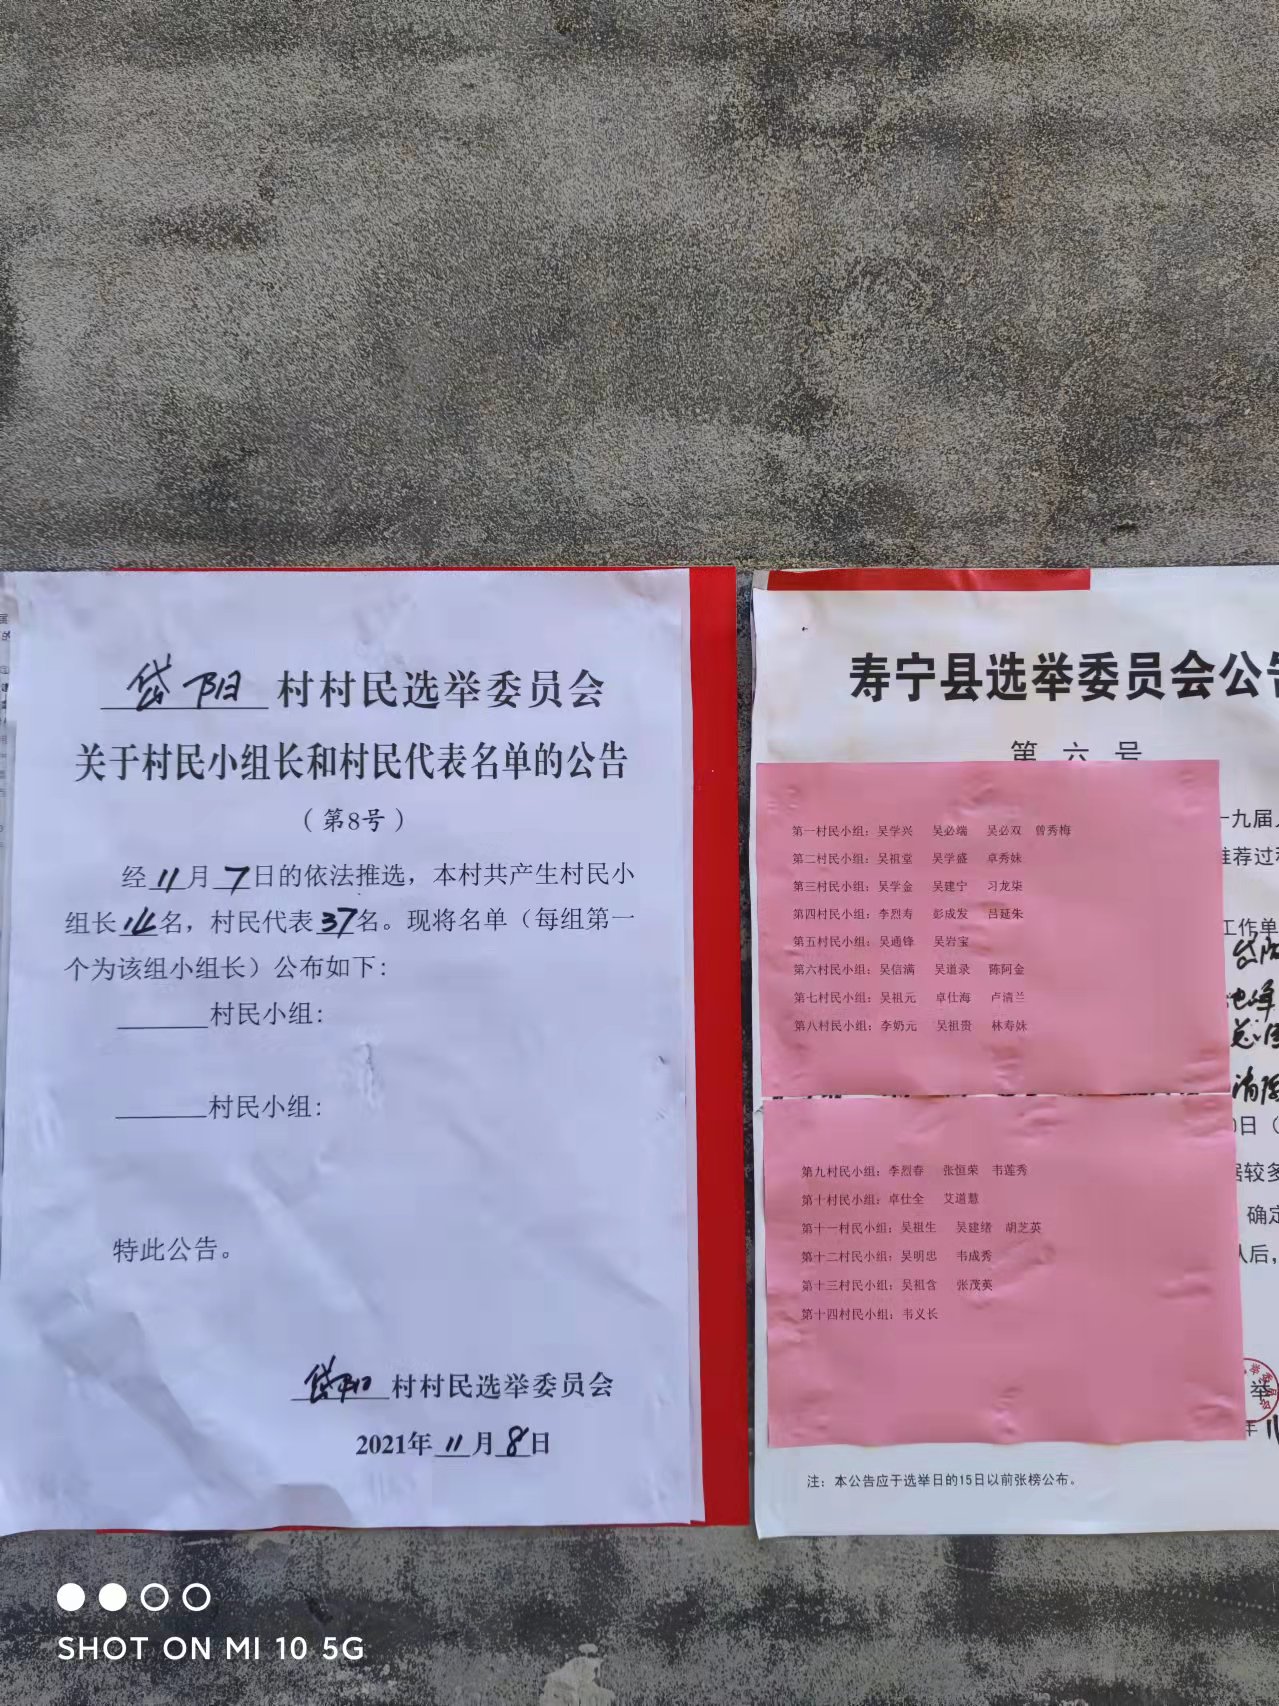 岱阳村村民选举委员会
关于村民小组长和村民代表名单的公告
（第8号）
经11月7日的依法推选，本村共产生村民小
组长14名，村民代表37名。现将名单（每组第一
个为该组小组长）公布如下：
村民小组：
村民小组：
特此公告。
岱阳村村民选举委员会
2021年11月8日
寿宁县选举委员会公告
第六号
第一村民小组：吴学兴 吴必端 吴必双 曾秀梅
第二村民小组：吴祖堂 吴学盛 卓秀妹
第三村民小组：吴学金 吴建宁 习龙柒
第四村民小组：李烈寿 彭成发 吕延朱
第五村民小组：吴通锋 吴岩宝
第六村民小组：吴信满 吴道录 陈阿金
第七村民小组：吴祖元 卓仕海 卢清兰
第八村民小组：李奶元 吴祖贵 林寿妹
第九村民小组：李烈春 张恒荣 韦莲秀
第十村民小组：卓仕全 艾道慧
第十一村民小组：吴祖生 吴建绪 胡芝英
第十二村民小组：吴明忠 韦成秀
第十三村民小组：吴祖含 张茂英
第十四村民小组：韦义长
十九届
推荐过
工作单
0日（
据较多
确定
认后，
注：本公告应于选举日的15日以前张榜公布。
SHOT ON MI 10 5G